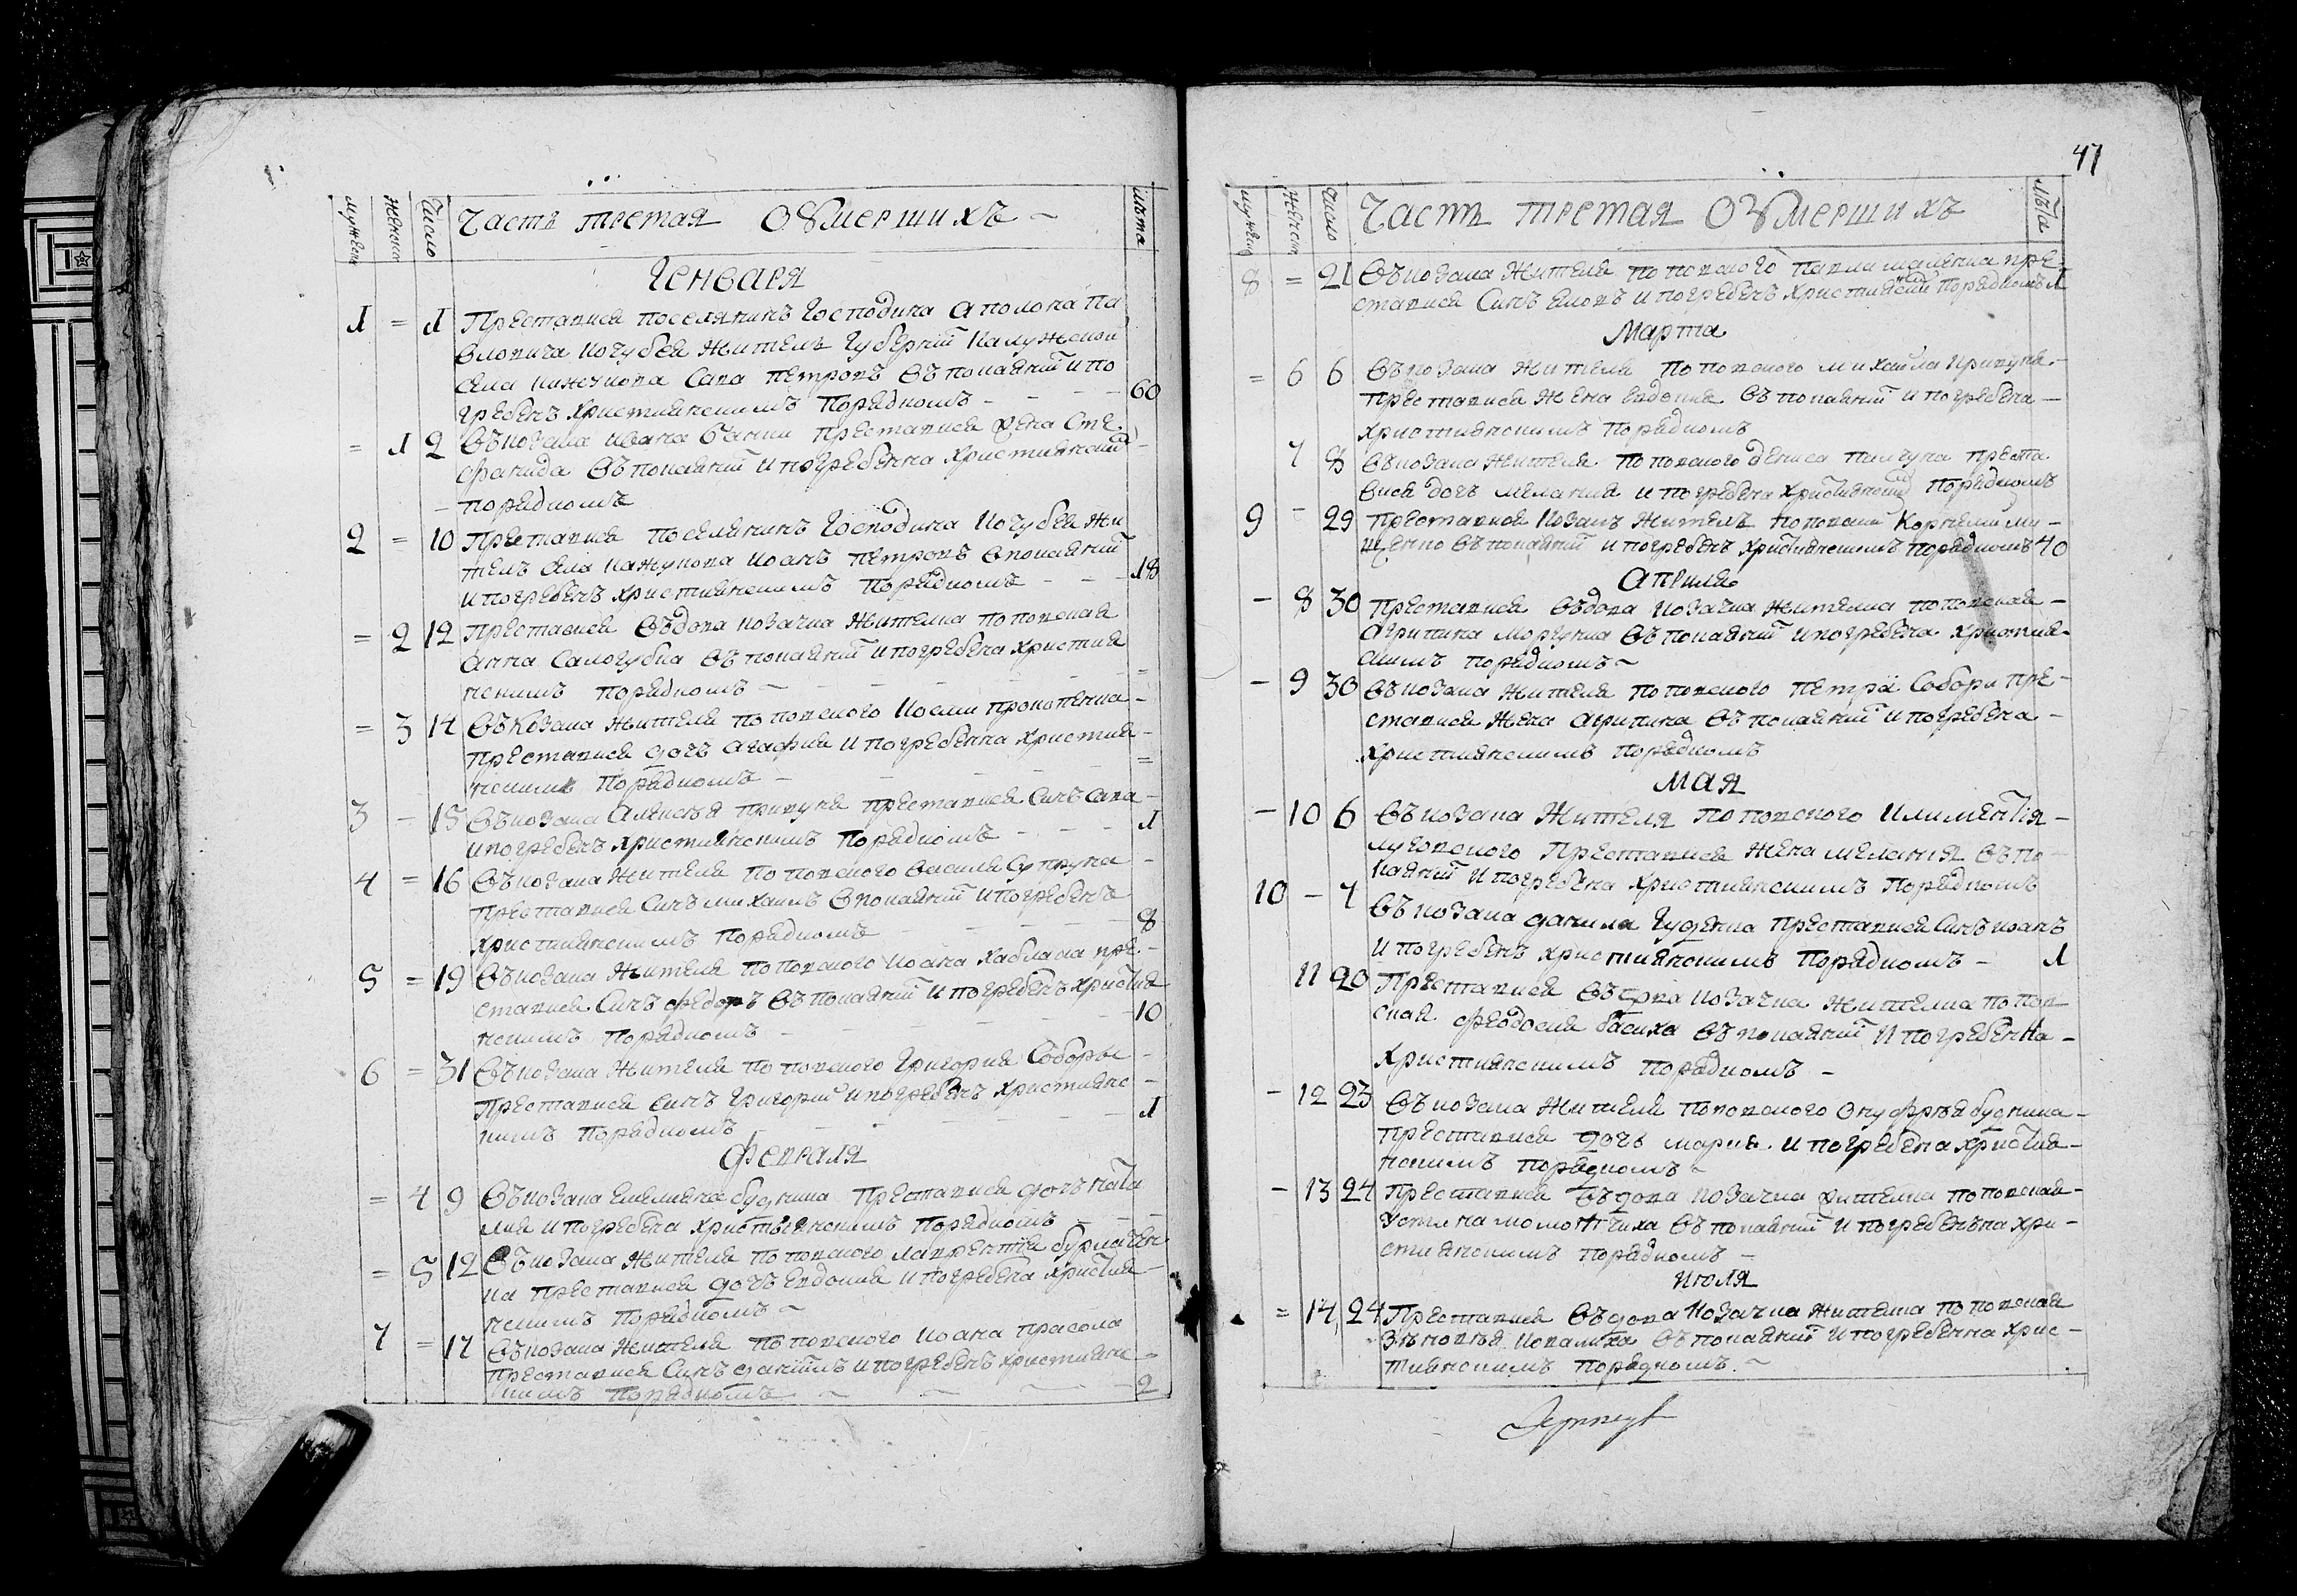 мужеска женска Число Часть третая Оумершихъ лѣта
Генваря
1 = 1 Преставися поселянинъ Господина Аполона Па
вловича Кочубея житель Губернїи Калужской
Села Сава Петровъ въ покаянїи и по
гребенъ християнскимъ порядкомъ 60
= 1 2 Въ козака Ивана преставися жена Сте
фанида въ покаянїи и погребенна християнским
порядкомъ
2 = 10 Преставися поселянинъ Господина Кочубея жи
тель Села Иоанъ Петровъ в покаянїи
и погребенъ християнскимъ порядкомъ 18
= 2 12 Преставися въдова козачка жителка поповская
Анна Салогубка въ покаянїи и погребена христия
нскимъ порядкомъ
= 3 14 Въ Козака жителя поповского Прокопенка
преставися дочь Агафия и погребенна христия
нскимъ порядкомъ
3 - 15 Въ козака Алексѣя Припуна преставися синъ Сава
и погребенъ християнскимъ порядкомъ 1
4 = 16 Въ козака жителя поповского Василя Супруна
преставися синъ Михаилъ в покаянїи и погребенъ
християнскимъ порядкомъ 8
5 = 19 Въ козака жителя поповского Иоана пре
ставися синъ Федоръ въ покаянїи и погребенъ христия
нскимъ порядкомъ 10
6 = 31 Въ козака жителя поповского Григория Соборы
преставися синъ Григорий и погребенъ християнс
кимъ порядкомъ 1
Февраля
= 4 9 Въ козака Емелияна Будника преставися дочь Ната
лия и погребена христыянскимъ порядкомъ
= 5 12 Въ козака жителя поповского Лаврентїя Бурлачен
ка преставися дочъ Евдокия и погребена христия
нскимъ порядкомъ
7 = 17 Въ козака жителя поповского Иоана Прасола
преставися синъ Данїилъ и погребенъ християнс
кимъ порядкомъ 2
47
мужеска женска Число Часть третая Оумершихъ лѣта
8 = 21 Въ козака жителя поповского Павла пре
ставися синъ и погребенъ християнским порядкомъ 1
Марта
= 6 6 Въ козака жителя поповского Михайла Припуна
преставися жена Евдокия въ покаянїи и погребена
християнскимъ порядкомъ
7 8 Въ козака жителя поповского Дениса преста
вися дочъ Мелания и погребена християнским порядкомъ
9 - 29 Преставися козакъ житель поповский Корнелий Ми
щенко въ покаянїи и погребенъ християнскимъ порядкомъ 40
Априля
- 8 30 Преставися въдова козачка жителка поповская
Агрипина Моргунка въ покаянїи и погребена християн
скимъ порядкомъ
- 9 30 Въ козака жителя поповского Петра Собора пре
ставися жена Агрипина въ покаянїи и погребена
християнскимъ порядкомъ
Мая
- 10 6 Въ козака жителя поповского Климентїя
преставися жена Мелания въ по
каянїи и погребена християнскимъ порядкомъ
10 - 7 Въ козака Данила Гуденка преставися синъ Иоанъ
и погребенъ християнскимъ порядкомъ 1
11 20 Преставися въдова козачка жителка попов
ская Феодосия Басиха въ покаянїи и погребенна
християнскимъ порядкомъ
- 12 23 Въ козака жителя поповского Онуфрѣя Будника
преставися дочь Мария и погребена христия
нскимъ порядкомъ
- 13 24 Преставися въдова козачка жителка поповская
въ покаянїи и погребенъна хри
стиянскимъ порядкомъ
Июля
= 14 24 Преставися въдова козачка жителка поповская
Зѣновѣя Ковалиха въ покаянїи и погребенна хрис
тиянскимъ порядкомъ